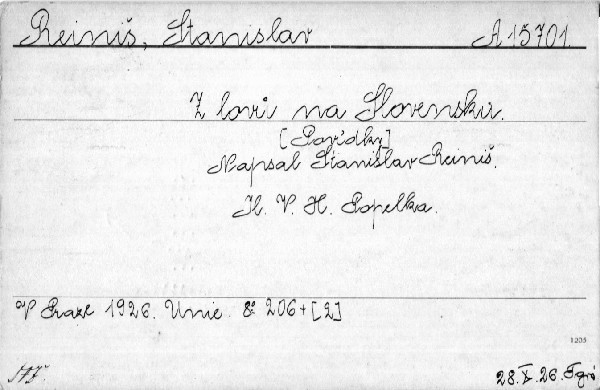 Reiniš, Stanislav A 15701.
Z lovů na Slovensku.
[Povídky]
Napsal Stanislav Reiniš.
Il. V. H. Popelka.
V Praze 1926. Unie. 8° 206+[2]
1205
28.X.26.